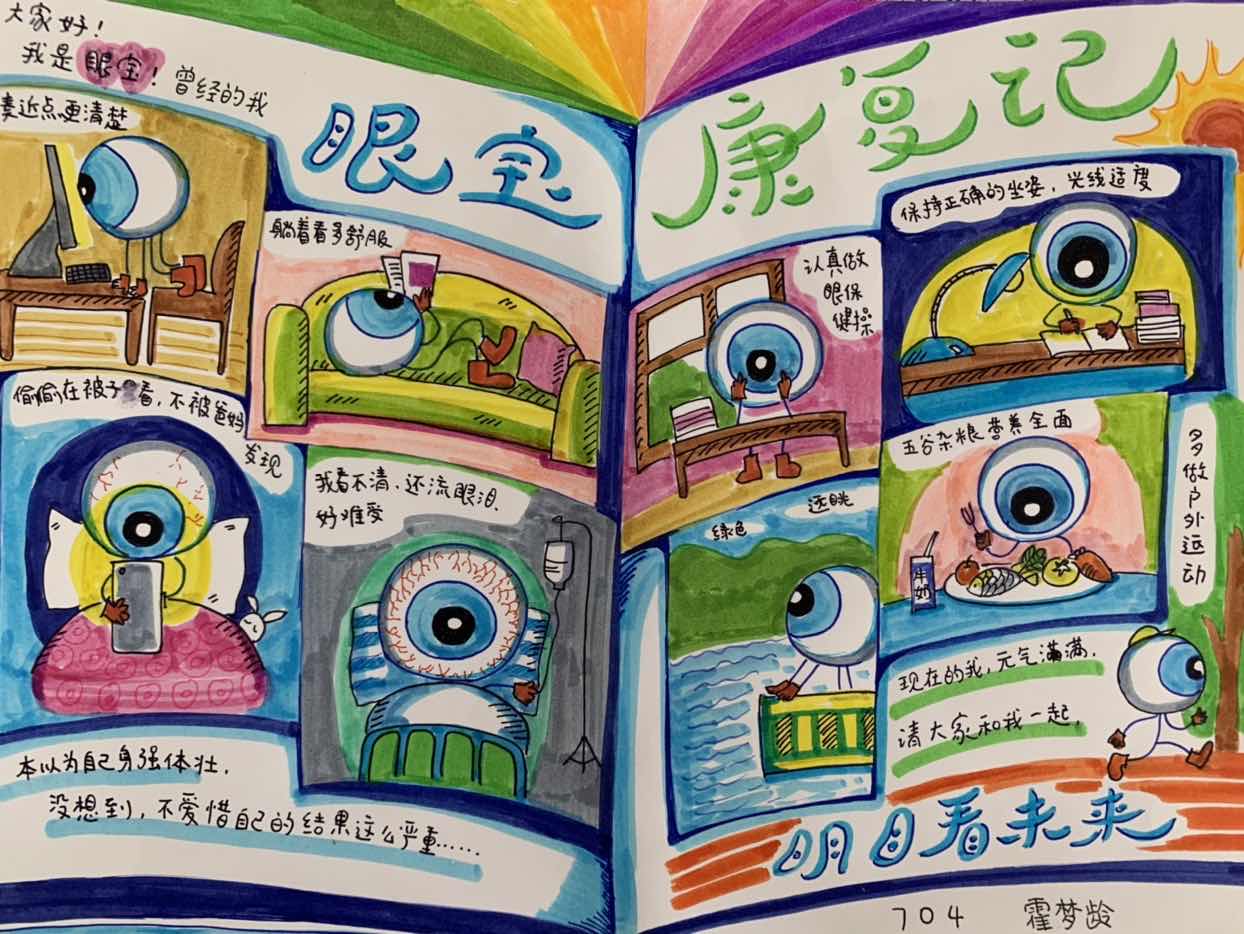 大家好！
我是眼宝！曾经的我
凑近点更清楚
眼宝
躺着看多舒服
偷偷在被子看，不被爸妈
发现
我看不清，还流眼泪，
好难受
本以为自己身强体壮，
没想到，不爱惜自己的结果这么严重……
康复记
认真做
眼保
健操
保持正确的坐姿，光线适度
绿色
远眺
五谷杂粮营养全面
牛奶
多做户外运动
现在的我，元气满满，
请大家和我一起，
明目看未来
704 霍梦龄